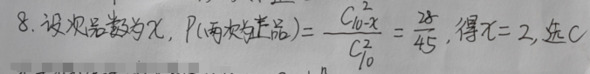 8. 设次品数为x, P(两次均正品) = \frac{C_{10-x}^2}{C_{10}^2} = \frac{28}{45}, 得x=2, 选C